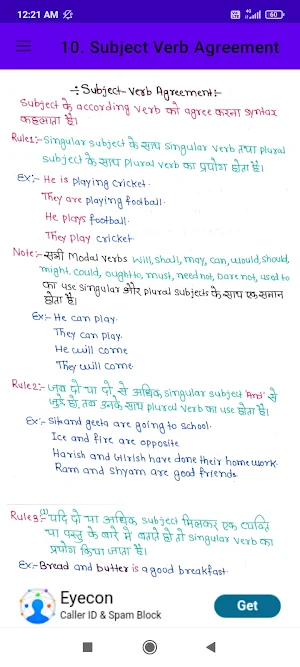 12:21 AM
4G
60
10. Subject Verb Agreement
-:Subject-Verb Agreement:-
Subject के according verb को agree करना syntax
कहलाता है।
Rule1:- Singular subject के साथ singular verb तथा plural
subject के साथ plural verb का प्रयोग होता है।
Ex:- He is playing cricket.
They are playing football.
He plays football.
They play cricket
Note:- सभी Modal verbs will, shall, may, can, would, should,
might, could, ought to, must, need not, Dare not, used to
का use singular और plural subjects के साथ एक समान
होता है।
Ex:- He can play.
They can play.
He will come
They will come
Rule2:- जब दो या दो से अधिक, singular subject 'And' से
जुड़े हो, तब उनके साथ plural verb का use होता है।
Ex:- Sita and geeta are going to school.
Ice and fire are opposite
Harish and Girish have done their homework.
Ram and shyam are good friends.
Rule3:- (1) यदि दो या अधिक subject मिलकर एक व्यक्ति
या वस्तु के बारे में बताते हो तो singular verb का
प्रयोग किया जाता है।
Ex:- Bread and butter is a good breakfast.
Eyecon
Caller ID & Spam Block
Get